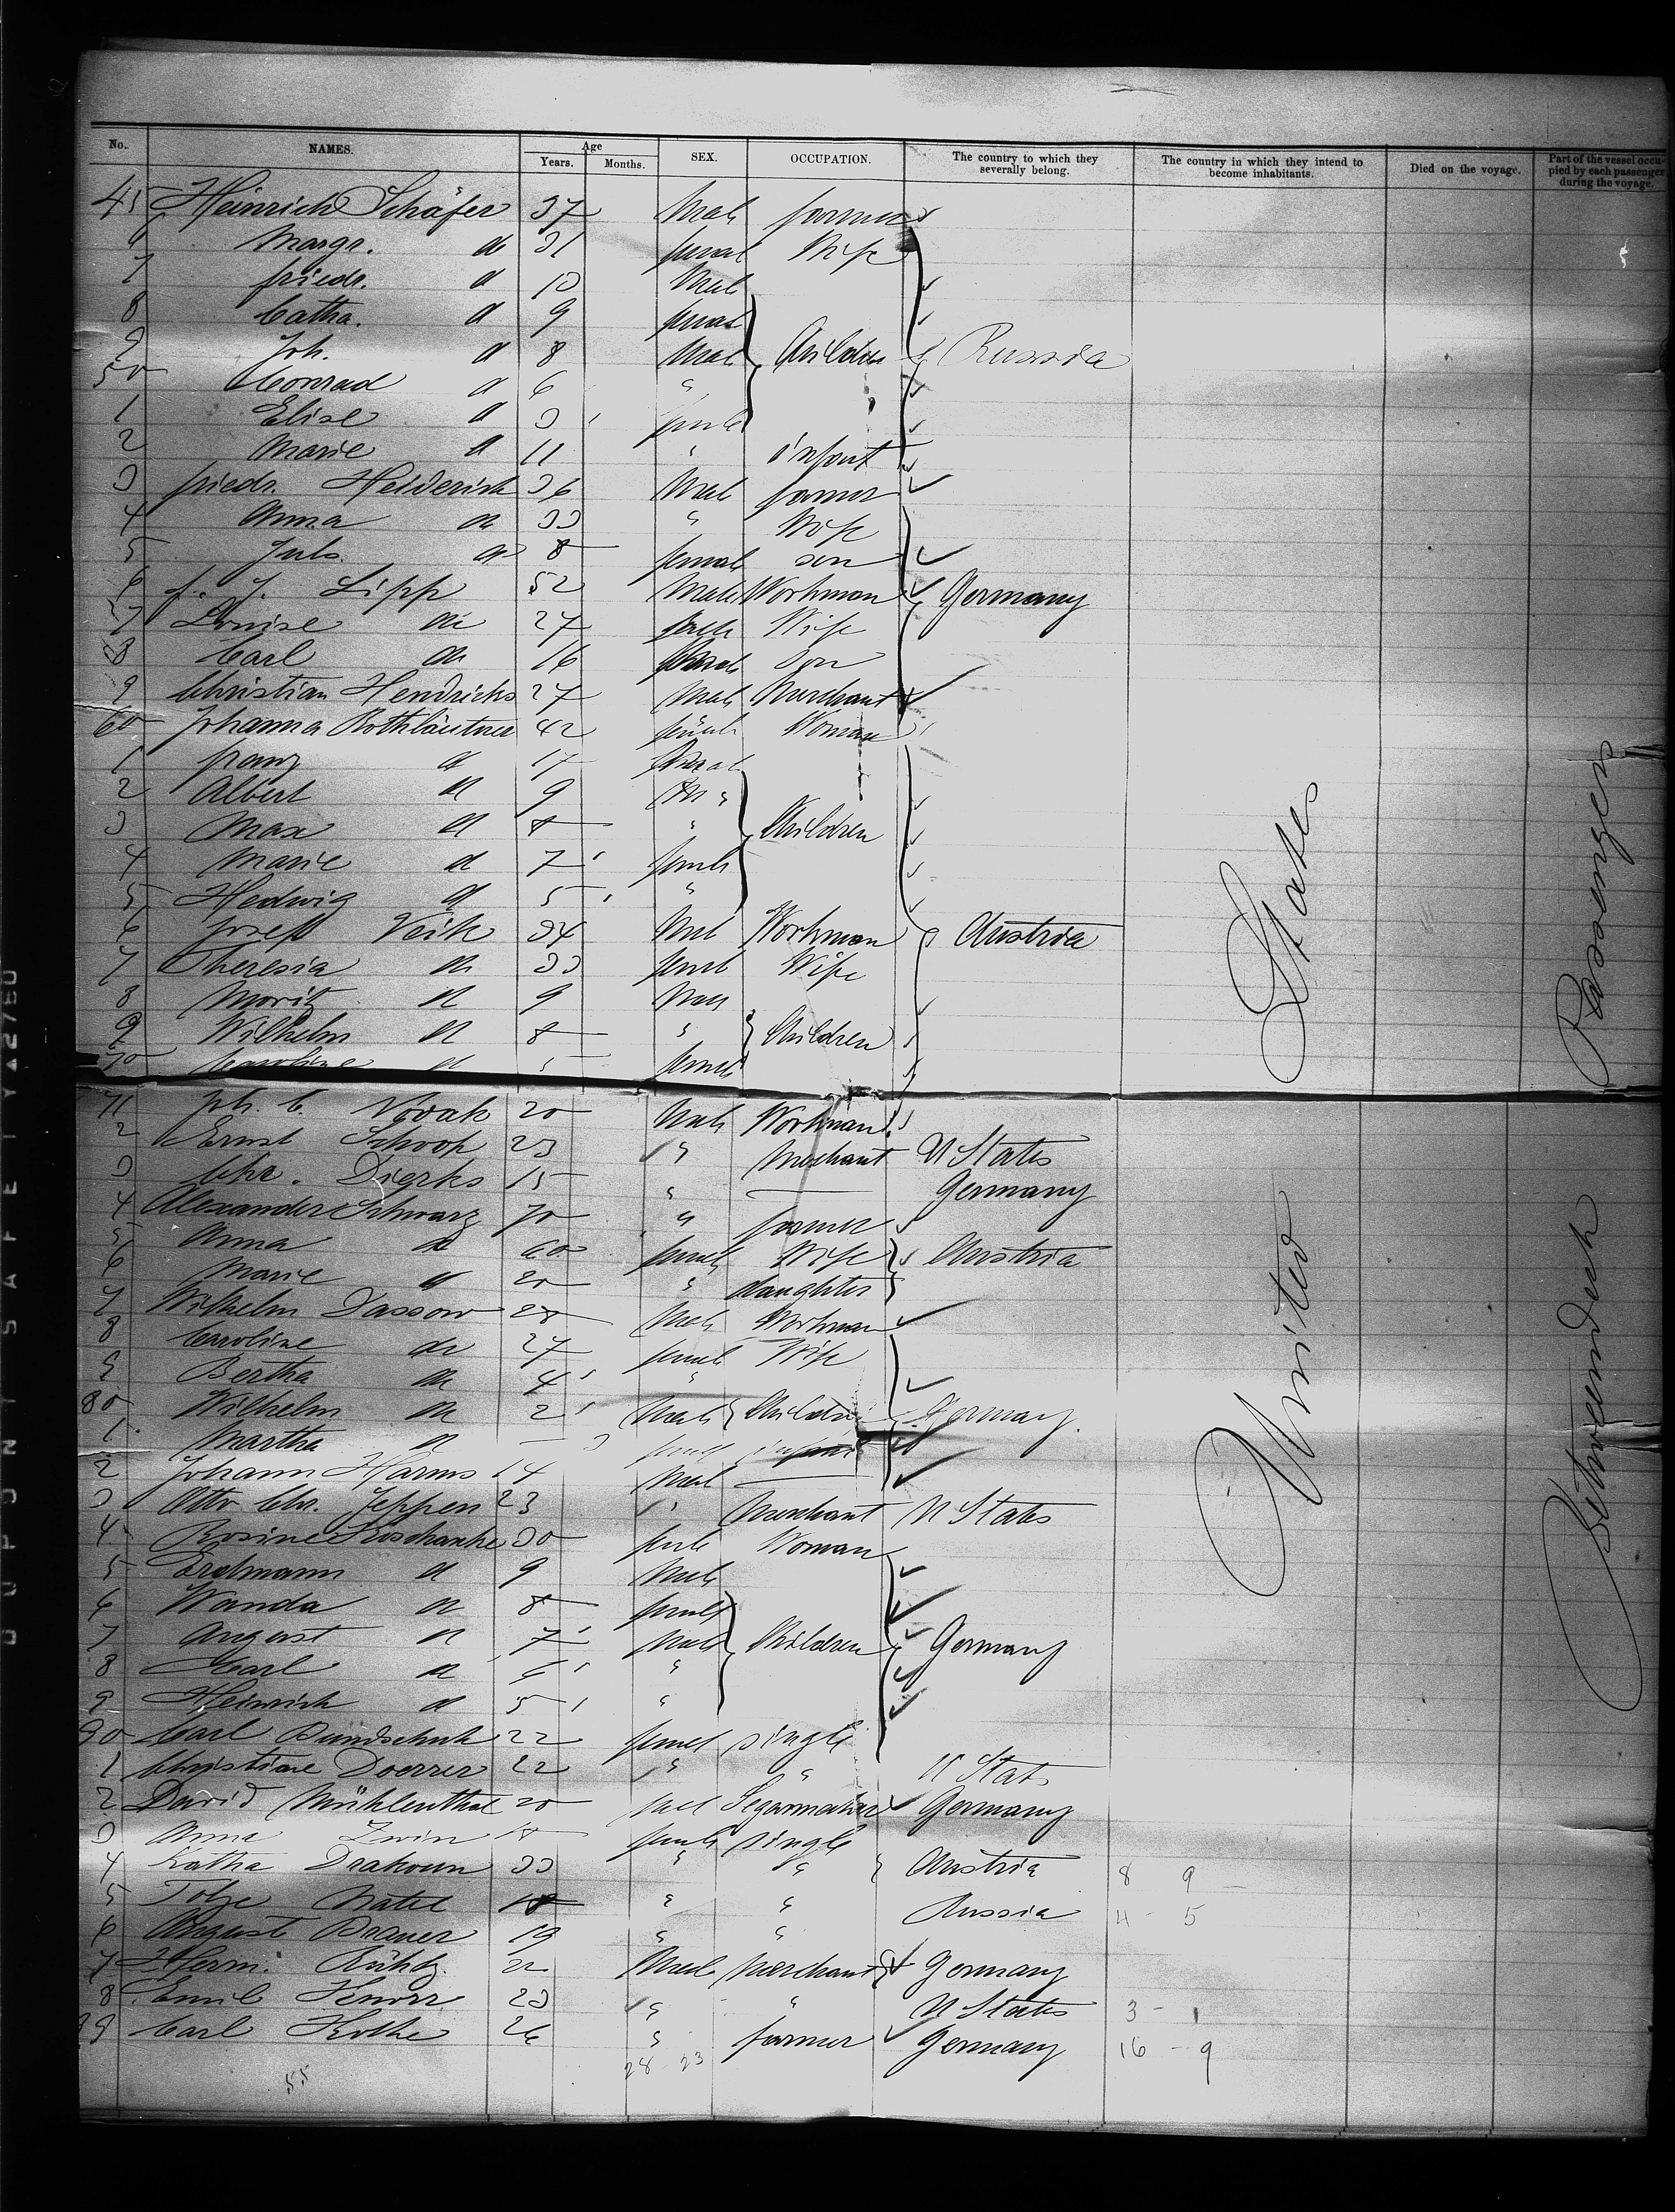 No. NAMES. Age Years. Months. SEX. OCCUPATION. The country to which they severally belong. The country in which they intend to become inhabitants. Died on the voyage. Part of the vessel occupied by each passenger during the voyage.
45 Heinrich Schäfer 37 Male farmer
6 Margr. do 31 femal Wife
7 friedr. do 10 Male
8 Catha. do 9 femal
9 Joh. do 8 Male Children Russia
50 Conrad do 6 "
1 Elise do 3 female
2 Marie do 11 " infant
3 friedr. Heiderich 36 Male farmer
4 Anna do 33 " Wife
5 Juls. do 8 female son
6 f. J. Lipp 52 Male Workman Germany
57 Louise do 27 female Wife
58 Carl do 16 Male Son
9 Christian Hendricks 27 Male Merchant
60 Johanna Rothläutner 42 female Woman
1 franz do 17 Male
2 Albert do 9 M "
3 Max do 8 " Children
4 Marie do 7 female
5 Hedwig do 5 "
6 Josef Veik 34 Male Workman Austria
7 Theresia do 33 female Wife
8 Moritz do 9 Male
9 Wilhelm do 8 " Children
70 Caroline do 5 female
71 Joh. C. Novak 20 Male Workman
2 Ernst Schoop 23 " Merchant U States
3 Chr. Dierks 15 " — Germany
4 Alexander Schwarz 70 " farmer
5 Anna do 60 female Wife Austria
6 Marie do 20 " daughter
7 Wilhelm Dassow 28 Male Workman
8 Caroline do 27 female Wife
9 Bertha do 4 "
80 Wilhelm do 2 Male Children Germany.
1 Martha do — 3 female infant
2 Johann Harms 14 Male —
3 Otto Chr. Jeppen 23 " Merchant U States
4 Rosine Koschanke 30 female Woman
5 Erdmann do 9 Male
6 Wanda do 8 female
7 August do 7 Male Children Germany
8 Carl do 6 "
9 Heinrich do 5 "
90 Carl Bundschuh 22 female single
1 Christiane Doerrer 22 " " U States
2 David Mühlenthal 20 Male Segarmaker Germany
3 Anna Zwin 18 female single
4 Katha Drakoun 33 " " Austria 8 9
5 Natel 18 " " Russia 4 - 5
6 August Brauer 19 " "
7 Herm. 22 Male Merchant Germany
8 Emil 23 " " U States 3 - 1
99 Carl Kothe 26 " farmer Germany 16 - 9
55 28 23
United States
Betweendeck Passengers
DUPONT SAFETY